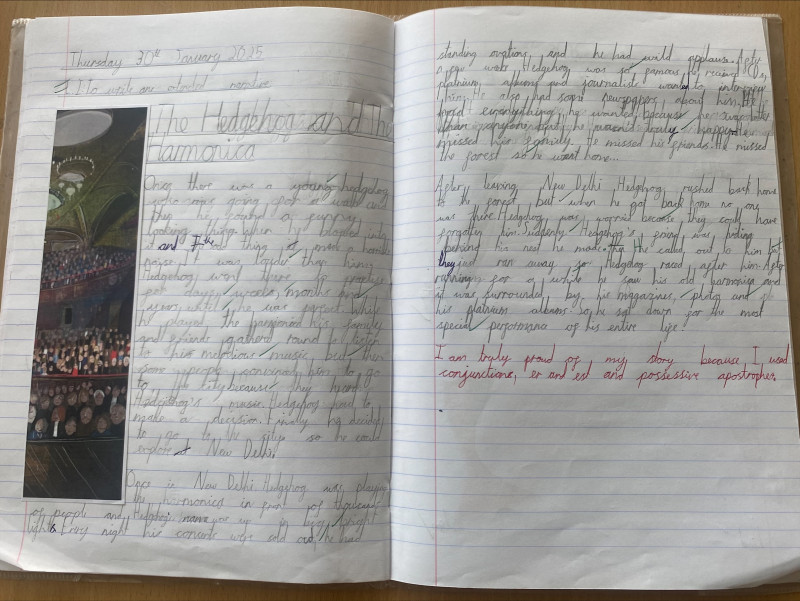 Thursday 30th January 2025
L.I To write an extended narrative
The Hedgehog and The
Harmonica
Once there was a young hedgehog
who was going for a walk and
then he found a funny
looking thing when he blowed into
it and the thing it made a horrible
noise. It was louder than him.
Hedgehog went there to practise
for days, weeks, months and
years until he was perfect. While
he played the harmonica his family
and friends gathered round to listen
to his melodious music but then
some people convinced him to go
to the city because they heard
Hedgehog's music. Hedgehog had to
make a decision. Finally he decided
to go to the city so he could
explore New Delhi.
Once in New Delhi Hedgehog was playing
the harmonica in front of thousands
of people and Hedgehog's name was up in big bright
lights. Every night his concerts were sold out he had
standing ovations and he had wild applause. After
a few weeks Hedgehog was so famous he received
platinum albums and journalists wanted to interview
him. He also had some newspapers about him. He
had everything he wanted because he was louder
than anyone but he wasn't truly happy. He
missed his family. He missed his friends. He missed
the forest so he went home...
After leaving New Delhi Hedgehog rushed back home
to the forest but when he got back home no one
was there. Hedgehog was worried because they could have
forgotten him. Suddenly Hedgehog's friend was hiding
behind his nest he made. He called out to him but
they just ran away so Hedgehog raced after him. After
running for a while he saw his old harmonica and
it was surrounded by his magazines, photos and
his platinum albums. So he sat down for the most
special performance of his entire life
I am truly proud of my story because I used
conjunctions, er and est and possessive apostrophes.